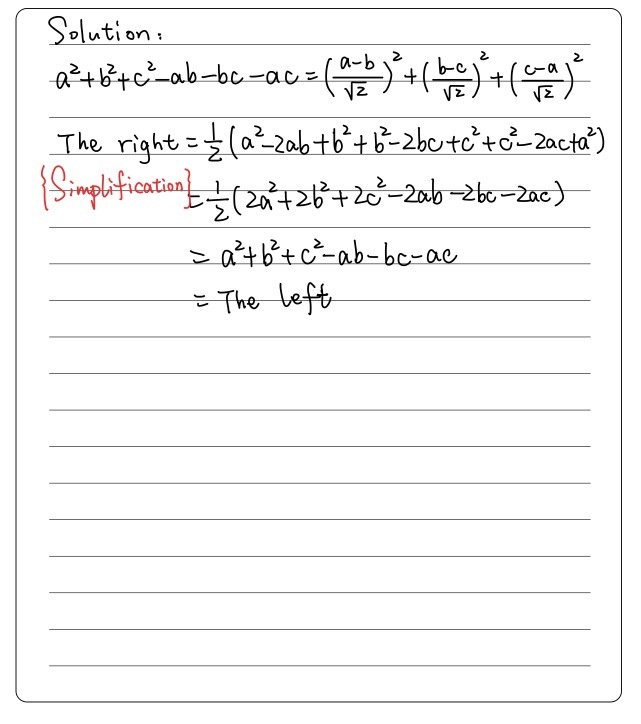 Solution:
a²+b²+c²-ab-bc-ac=(\frac{a-b}{\sqrt{2}})²+(\frac{b-c}{\sqrt{2}})²+(\frac{c-a}{\sqrt{2}})²
The right=\frac{1}{2}(a²-2ab+b²+b²-2bc+c²+c²-2ac+a²)
{Simplification}=\frac{1}{2}(2a²+2b²+2c²-2ab-2bc-2ac)
= a²+b²+c²-ab-bc-ac
= The left